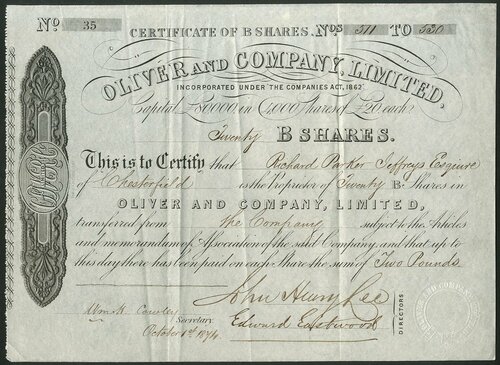 No. 35 CERTIFICATE OF B SHARES. Nos 511 TO 530
OLIVER AND COMPANY, LIMITED,
INCORPORATED UNDER "THE COMPANIES ACT, 1862"
Capital £80000 in 4,000 Shares of £20 each
Twenty B SHARES.
This is to Certify that Richard Parker Jeffreys Esquire
of Chesterfield is the Proprietor of Twenty B. Shares in
OLIVER AND COMPANY, LIMITED,
transferred from the Company subject to the Articles
and memorandum of Association of the said Company, and that up to
this day there has been paid on each Share the sum of Two Pounds
John Henry Lee
Wm. Cowley
Secretary.
Edward Eastwood
October 1st 1874
DIRECTORS